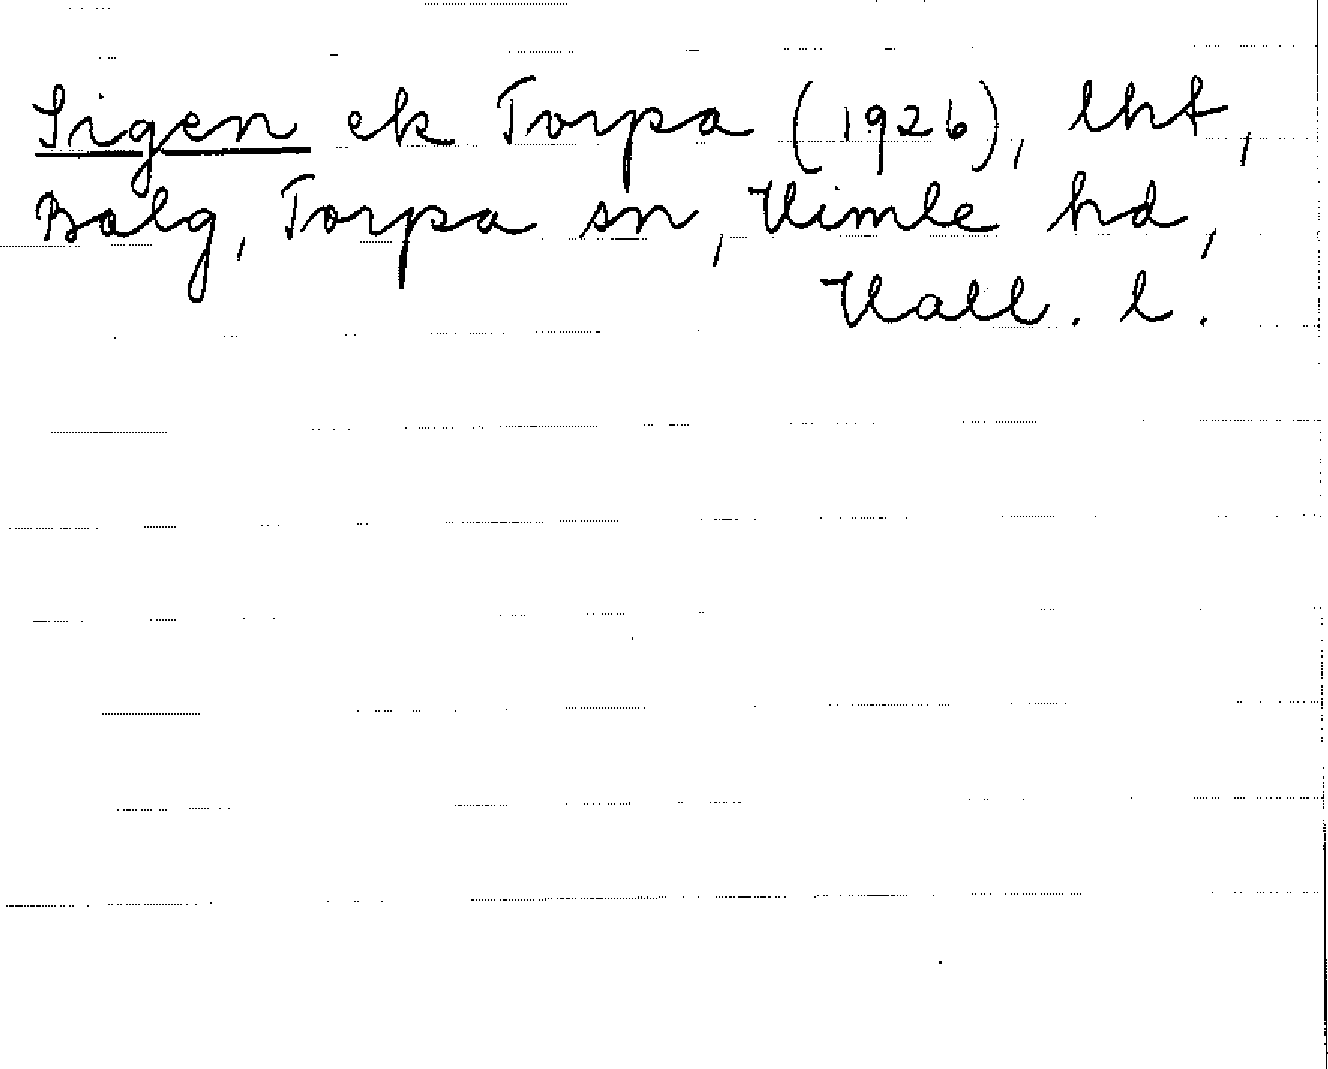 Sigen ek Torpa (1926), lht,
Balg, Torpa sn, Himle hd,
Hall. l.